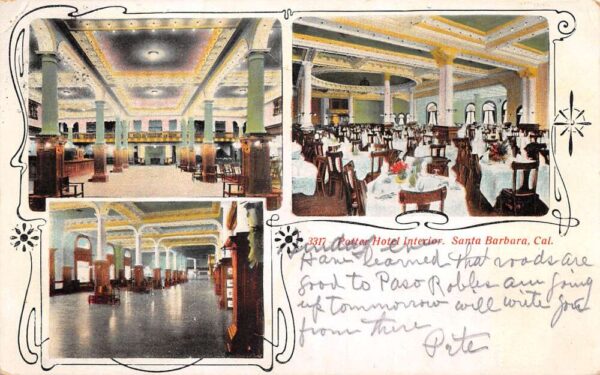 3317 Potter Hotel Interior. Santa Barbara, Cal.
Sunday
Have learned that roads are
good to Paso Robles am going
up tommorrow will write you
from there
Pete